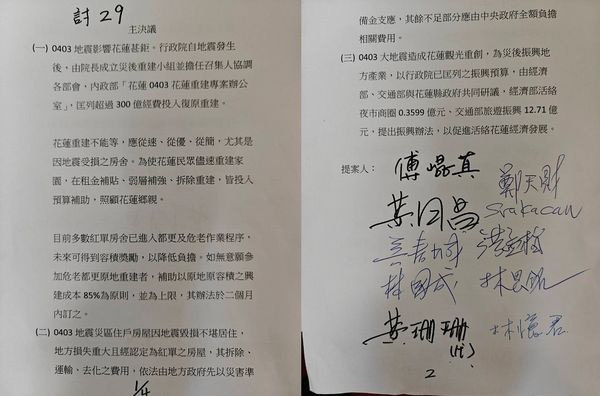 討 29
主決議
(一) 0403 地震影響花蓮甚鉅。行政院自地震發生
後，由院長成立災後重建小組並擔任召集人協調
各部會，內政部「花蓮 0403 花蓮重建專案辦公
室」，匡列超過 300 億經費投入復原重建。
花蓮重建不能等，應從速、從優、從簡，尤其是
因地震受損之房舍。為使花蓮民眾儘速重建家
園，在租金補貼、弱層補強、拆除重建，皆投入
預算補助，照顧花蓮鄉親。
目前多數紅單房舍已進入都更及危老作業程序，
未來可得到容積獎勵，以降低負擔。如無意願參
加危老都更原地重建者，補助以原地原容積之興
建成本 85%為原則，並為上限，其辦法於二個月
內訂之。
(二) 0403 地震災區住戶房屋因地震毀損不堪居住，
地方損失重大且經認定為紅單之房屋，其拆除、
運輸、去化之費用，依法由地方政府先以災害準
備金支應，其餘不足部分應由中央政府全額負擔
相關費用。
(三) 0403 大地震造成花蓮觀光重創，為災後振興地
方產業，以行政院已匡列之振興預算，由經濟
部、交通部與花蓮縣政府共同研議，經濟部活絡
夜市商圈 0.3599 億元、交通部旅遊振興 12.71 億
元，提出振興辦法，以促進活絡花蓮經濟發展。
提案人：
傅崐萁
鄭天財
Sra Kacaw
林國成
林思銘
黃珊珊
(代)
林憶君
2